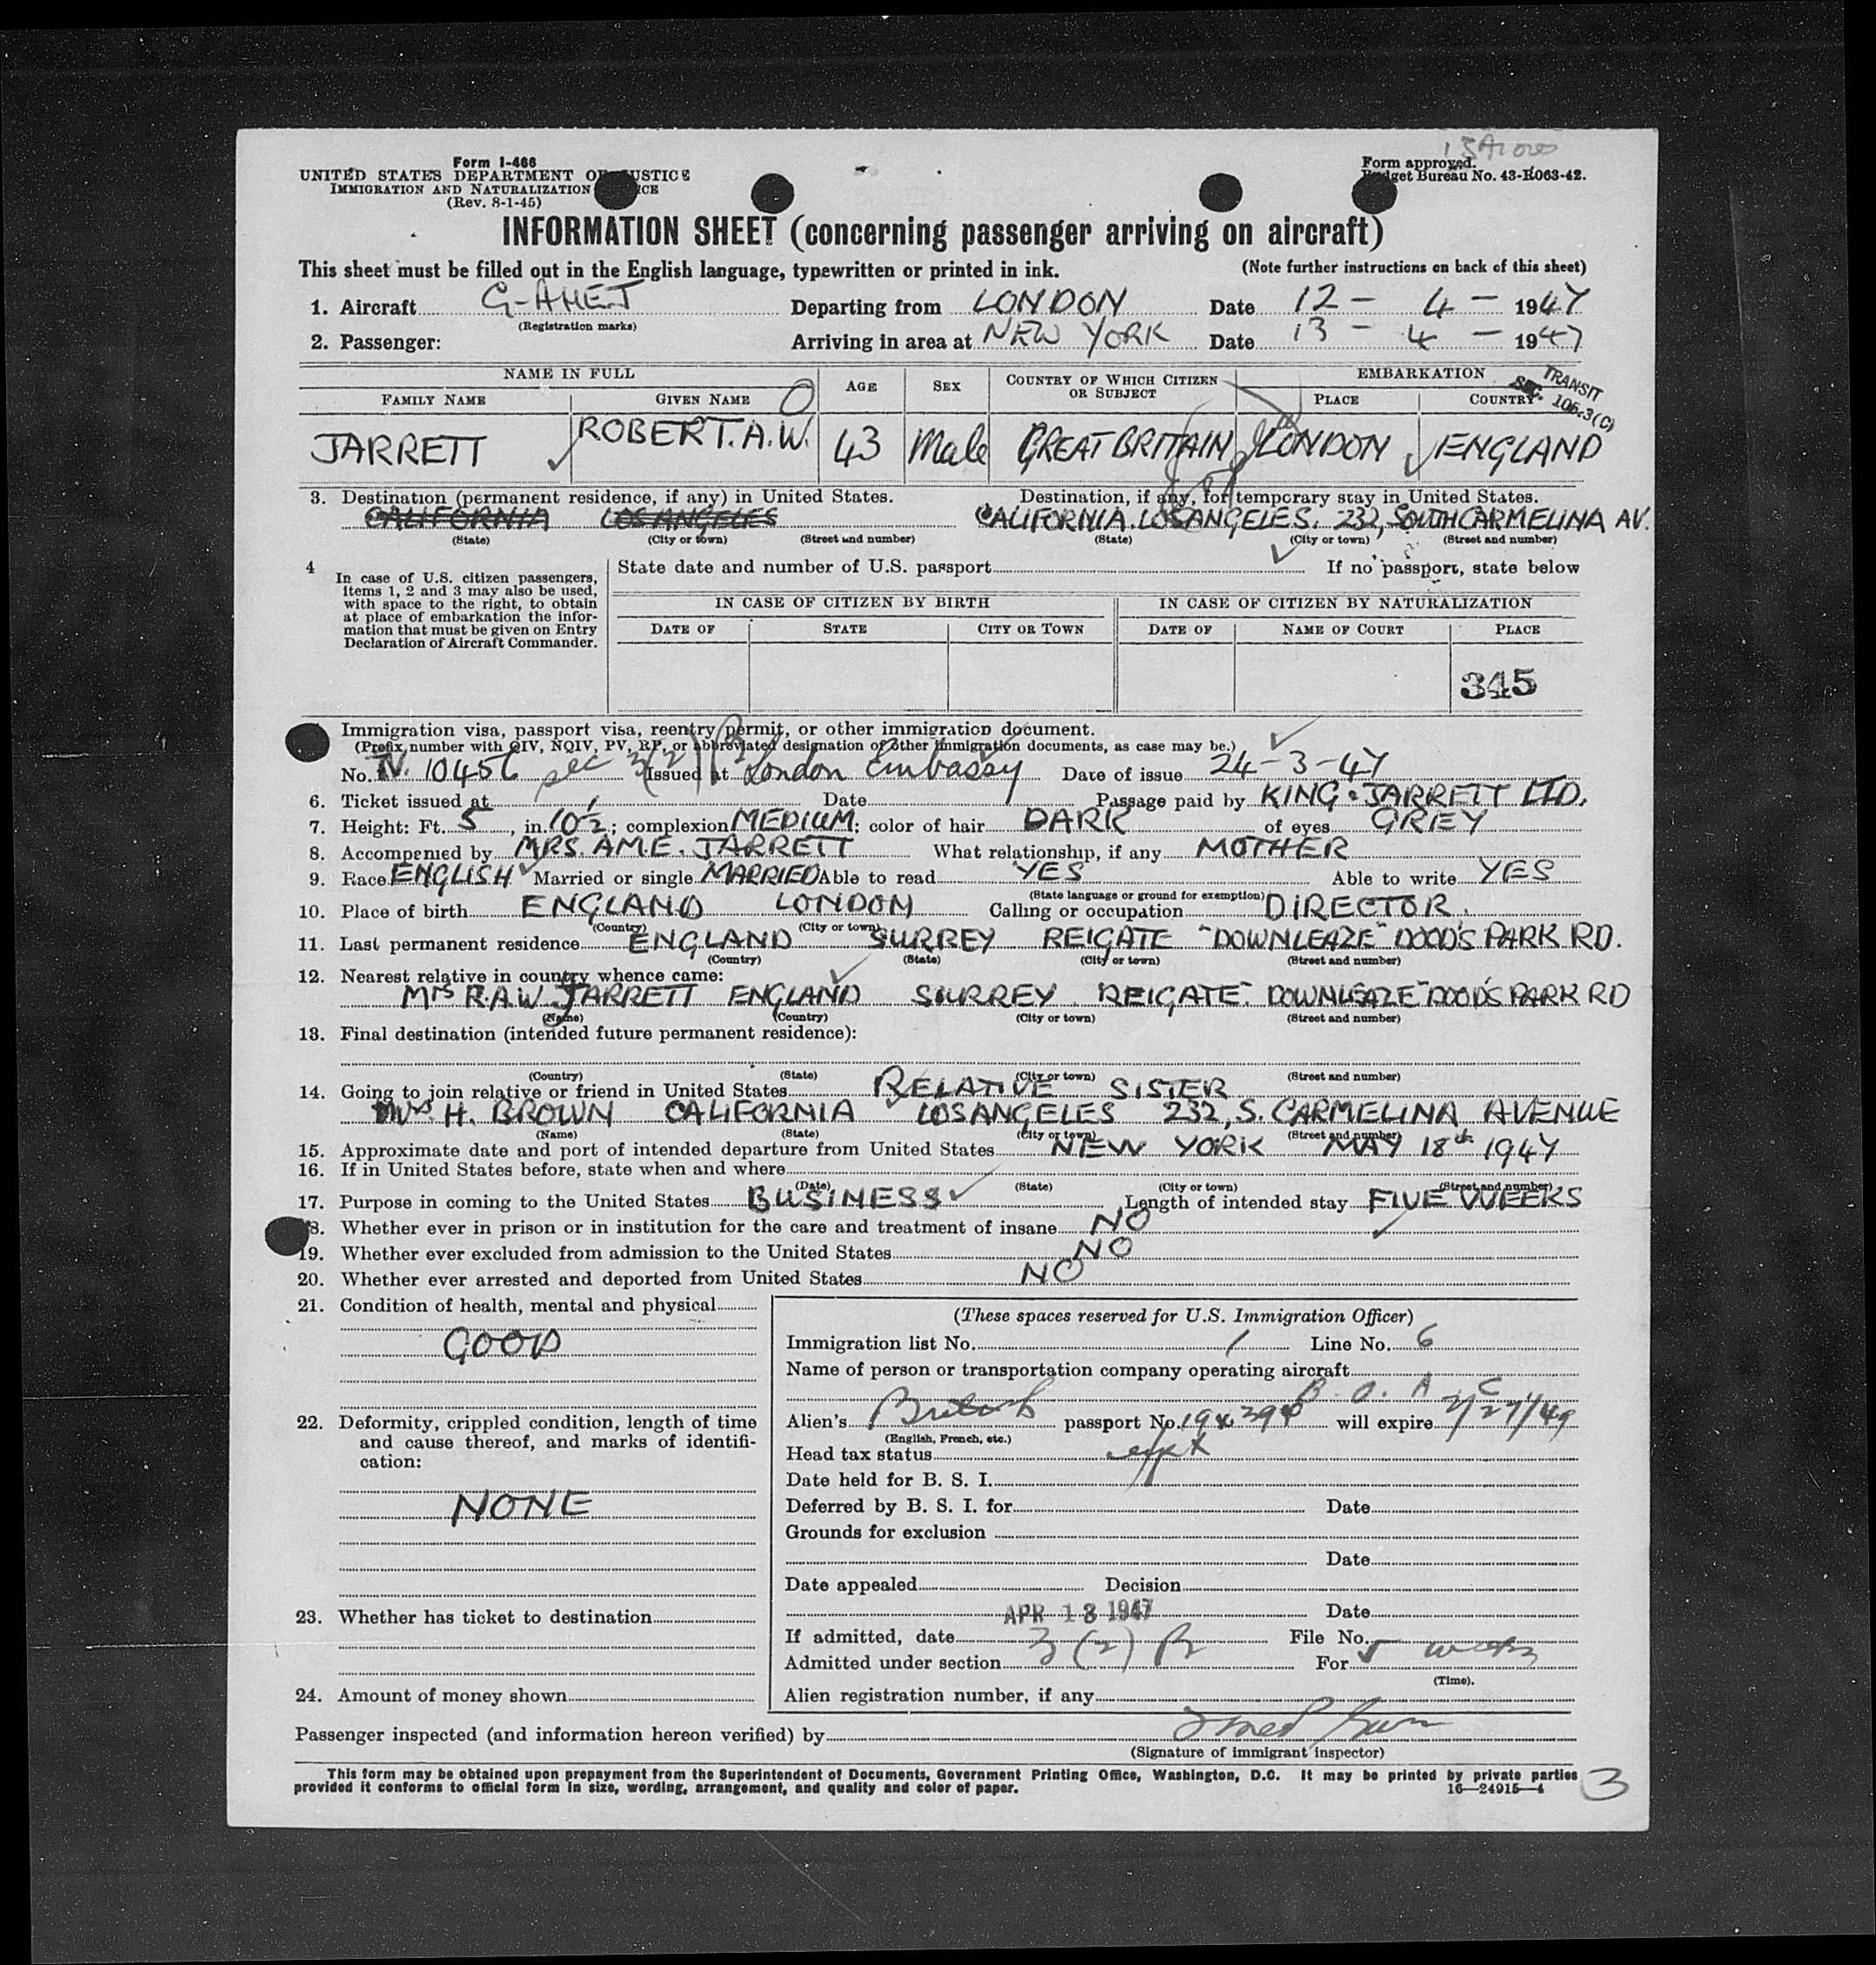 Form I-466
UNITED STATES DEPARTMENT OF JUSTICE
IMMIGRATION AND NATURALIZATION SERVICE
(Rev. 8-1-45)
Form approved.
Budget Bureau No. 43-R063-42.
INFORMATION SHEET (concerning passenger arriving on aircraft)
This sheet must be filled out in the English language, typewritten or printed in ink. (Note further instructions on back of this sheet)
1. Aircraft G-AHEJ Departing from LONDON Date 12 - 4 - 1947
(Registration marks)
2. Passenger: Arriving in area at NEW YORK Date 13 - 4 - 1947
NAME IN FULL AGE SEX COUNTRY OF WHICH CITIZEN OR SUBJECT EMBARKATION
FAMILY NAME GIVEN NAME PLACE COUNTRY
TRANSIT
SEC. 105.3(C)
JARRETT ROBERT. A.W. 43 Male GREAT BRITAIN LONDON ENGLAND
3. Destination (permanent residence, if any) in United States. Destination, if any, for temporary stay in United States.
CALIFORNIA LOS ANGELES CALIFORNIA. LOS ANGELES. 232, SOUTH CARMELINA AV.
(State) (City or town) (Street and number) (State) (City or town) (Street and number)
4 In case of U.S. citizen passengers, items 1, 2 and 3 may also be used, with space to the right, to obtain at place of embarkation the information that must be given on Entry Declaration of Aircraft Commander.
State date and number of U.S. passport If no passport, state below
IN CASE OF CITIZEN BY BIRTH IN CASE OF CITIZEN BY NATURALIZATION
DATE OF STATE CITY OR TOWN DATE OF NAME OF COURT PLACE
345
Immigration visa, passport visa, reentry permit, or other immigration document.
(Prefix number with QIV, NQIV, PV, RP, or abbreviated designation of other immigration documents, as case may be.)
No. N. 10456 sec 3(2) Issued at London Embassy Date of issue 24-3-47
6. Ticket issued at Date Passage paid by KING & JARRETT LTD.
7. Height: Ft. 5, in. 10½; complexion MEDIUM; color of hair DARK of eyes GREY
8. Accompanied by MRS. A.M.E. JARRETT What relationship, if any MOTHER
9. Race ENGLISH Married or single MARRIED Able to read YES Able to write YES
(State language or ground for exemption)
10. Place of birth ENGLAND LONDON Calling or occupation DIRECTOR.
(Country) (City or town)
11. Last permanent residence ENGLAND SURREY REIGATE "DOWNLEAZE" DOOD'S PARK RD.
(Country) (State) (City or town) (Street and number)
12. Nearest relative in country whence came:
Mrs R.A.W. JARRETT ENGLAND SURREY REIGATE "DOWNLEAZE" DOOD'S PARK RD
(Name) (Country) (City or town) (Street and number)
13. Final destination (intended future permanent residence):
(Country) (State) (City or town) (Street and number)
14. Going to join relative or friend in United States RELATIVE SISTER
Mrs H. BROWN CALIFORNIA LOS ANGELES 232, S. CARMELINA AVENUE
(Name) (State) (City or town) (Street and number)
15. Approximate date and port of intended departure from United States NEW YORK MAY 18th 1947
16. If in United States before, state when and where
(Date) (State) (City or town) (Street and number)
17. Purpose in coming to the United States BUSINESS Length of intended stay FIVE WEEKS
18. Whether ever in prison or in institution for the care and treatment of insane NO
19. Whether ever excluded from admission to the United States NO
20. Whether ever arrested and deported from United States NO
21. Condition of health, mental and physical
GOOD
22. Deformity, crippled condition, length of time and cause thereof, and marks of identification:
NONE
23. Whether has ticket to destination
24. Amount of money shown
(These spaces reserved for U.S. Immigration Officer)
Immigration list No. 1 Line No. 6
Name of person or transportation company operating aircraft
B. O. A C
Alien's British passport No. will expire 2/27/49
(English, French, etc.)
Head tax status
Date held for B. S. I.
Deferred by B. S. I. for Date
Grounds for exclusion
Date
Date appealed Decision
APR 13 1947 Date
If admitted, date File No.
Admitted under section 3(2) B For 5 weeks
(Time).
Alien registration number, if any
Passenger inspected (and information hereon verified) by
(Signature of immigrant inspector)
This form may be obtained upon prepayment from the Superintendent of Documents, Government Printing Office, Washington, D.C. It may be printed by private parties
provided it conforms to official form in size, wording, arrangement, and quality and color of paper. 16—24915-4
3